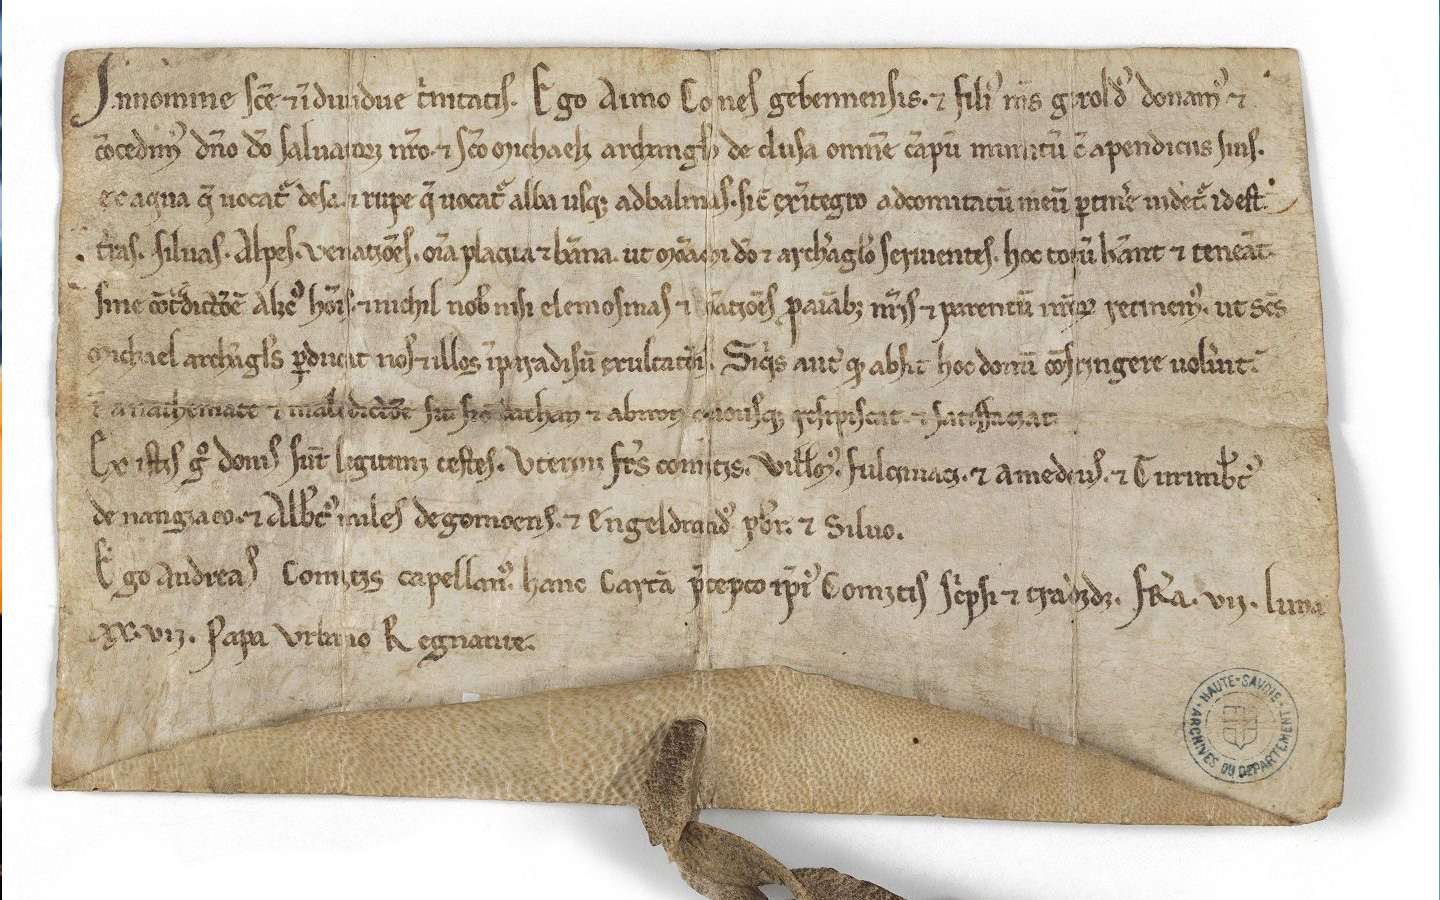 In nomine sc̄e ⁊ īdiuidue t̓nitatis. Ego Aimo Comes gebennensis. ⁊ filiꝰ mr̄s giroldꝰ donamꝰ ⁊
c̄ocedimꝰ dn̄o dō saluatori nr̄o. ⁊ sc̄o michaeli archangl̄o de clusa omn̄e cāpū munitū c̄ apendiciis suis.
ex aqua q̄ uocat᷑ desa. ⁊ rupe q̄ uocat᷑ alba usq; ad balmas. sic̄ ex ītegro ad comitatū meū ꝑtine᷑ uidet᷑ id est
tr̄as. siluas. Alpes. venatiōes. om̄a placita ⁊ bāna. ut mōachi dō ⁊ archāgl̄o seruientes. hoc totū hāant ⁊ teneāt.
sine cōt᷑dictiōe Alic̄ꝰ hōis. ⁊ nichil nob̄ nisi elemosinas ⁊ oratiōes p aīab; nr̄is ⁊ parentū nr̄oꝝ retinemꝰ. ut sc̄s
michael archāgl̄s ꝑducat nos ⁊ illos ī paradisū exultatiōis. Siq̄s aut̄ qd̄ absit hoc donū cōfringere uolu̓it.
ī anathemate ⁊ maledictiōe sit sic̄ dathan ⁊ abiron quousq; resipiscat. ⁊ satisfaciat.
Ex istis g̊ donis sūt legitimi testes. Vterini fr̄s comitis. Will̄mꝰ. fulciniaci. ⁊ amedeus. ⁊ Turumb̄tꝰ
de nangiaco. ⁊ Alb̄tꝰ miles de gomoens. ⁊ Engeldrandꝰ pb̄r. ⁊ Siluo.
Ego Andreas Comitis capellanꝰ. hanc Cartā p̄cepto ip̄iꝰ Comitis sc̓psi ⁊ tradidi. fr̄a. vii. luna
xx. vii. Papa Vrbano Regnante.
HAUTE-SAVOIE
ARCHIVES DU DEPARTEMENT